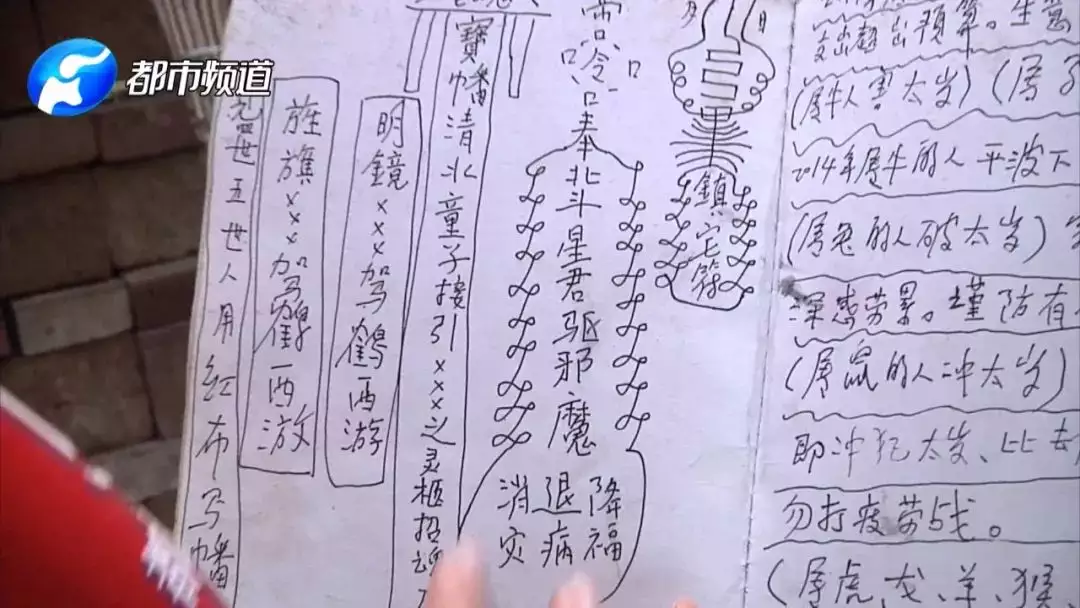 都市频道
五世人用红布写幡
旌旗×××驾鹤西游
明鏡×××驾鹤西游
寶幡清北童子接引×××之灵柩招魂
奉北斗星君驱邪魔
消灾退病降福
鎮宅符
支出超出预算。生意
(属牛人害太岁)(属
2014年属牛的人平波下
(属兔的人破太岁)
深感劳累。谨防有
(属鼠的人冲太岁)
即冲犯太岁、比
勿打疲劳战。
(属虎、龙、羊、猴、